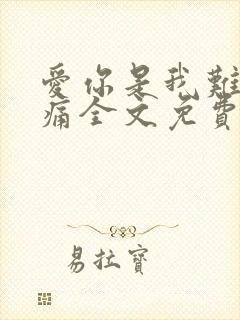 愛你是我難
痛全文免費
易拉寶